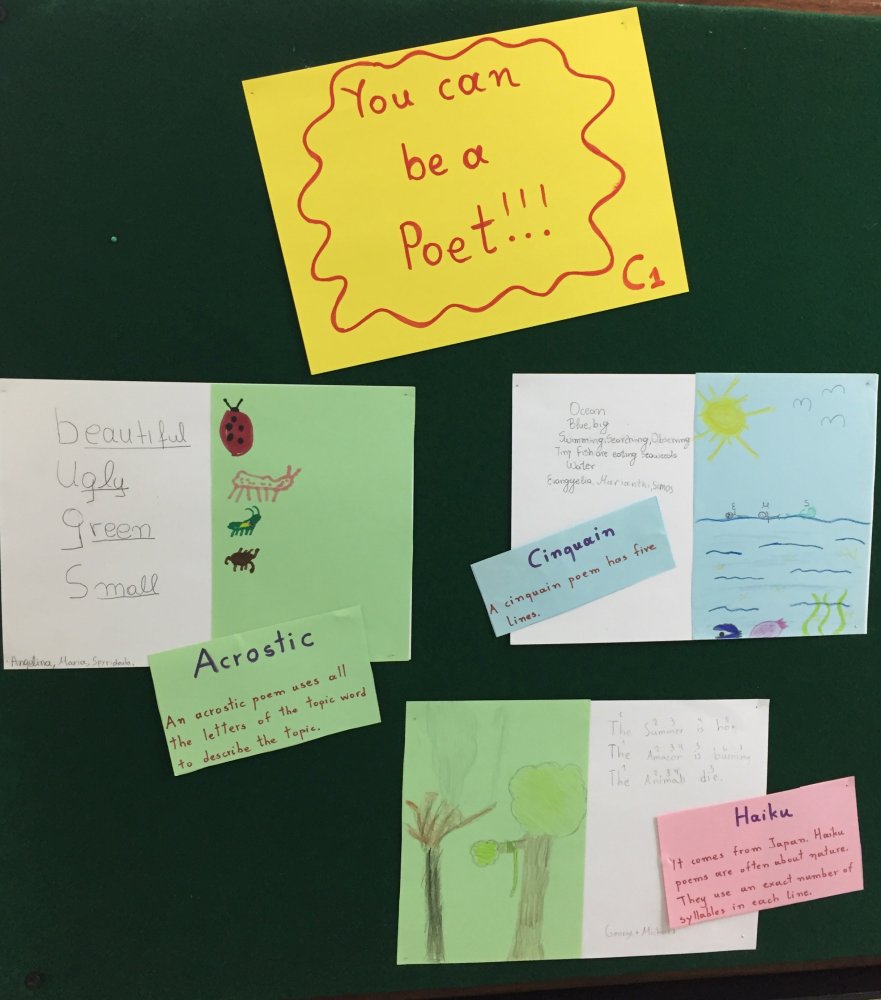 You can
be a
Poet!!!
C1
beautiful
Ugly
green
Small
Angelina, Maria, Spyridoula.
Acrostic
An acrostic poem uses all
the letters of the topic word
to describe the topic.
Ocean
Blue, big
Swimming, Searching, Observing
Tiny Fish are eating Seaweeds
Water
Evangyelia, Marianthi, Simos
E M S
Cinquain
A cinquain poem has five
lines.
1 2 3 4 5
The Summer is hot
1 2 3 4 5 6 7
The Amazon is burning
1 2 3 4 5
The Animals die.
George + 
Haiku
It comes from Japan. Haiku
poems are often about nature.
They use an exact number of
syllables in each line.